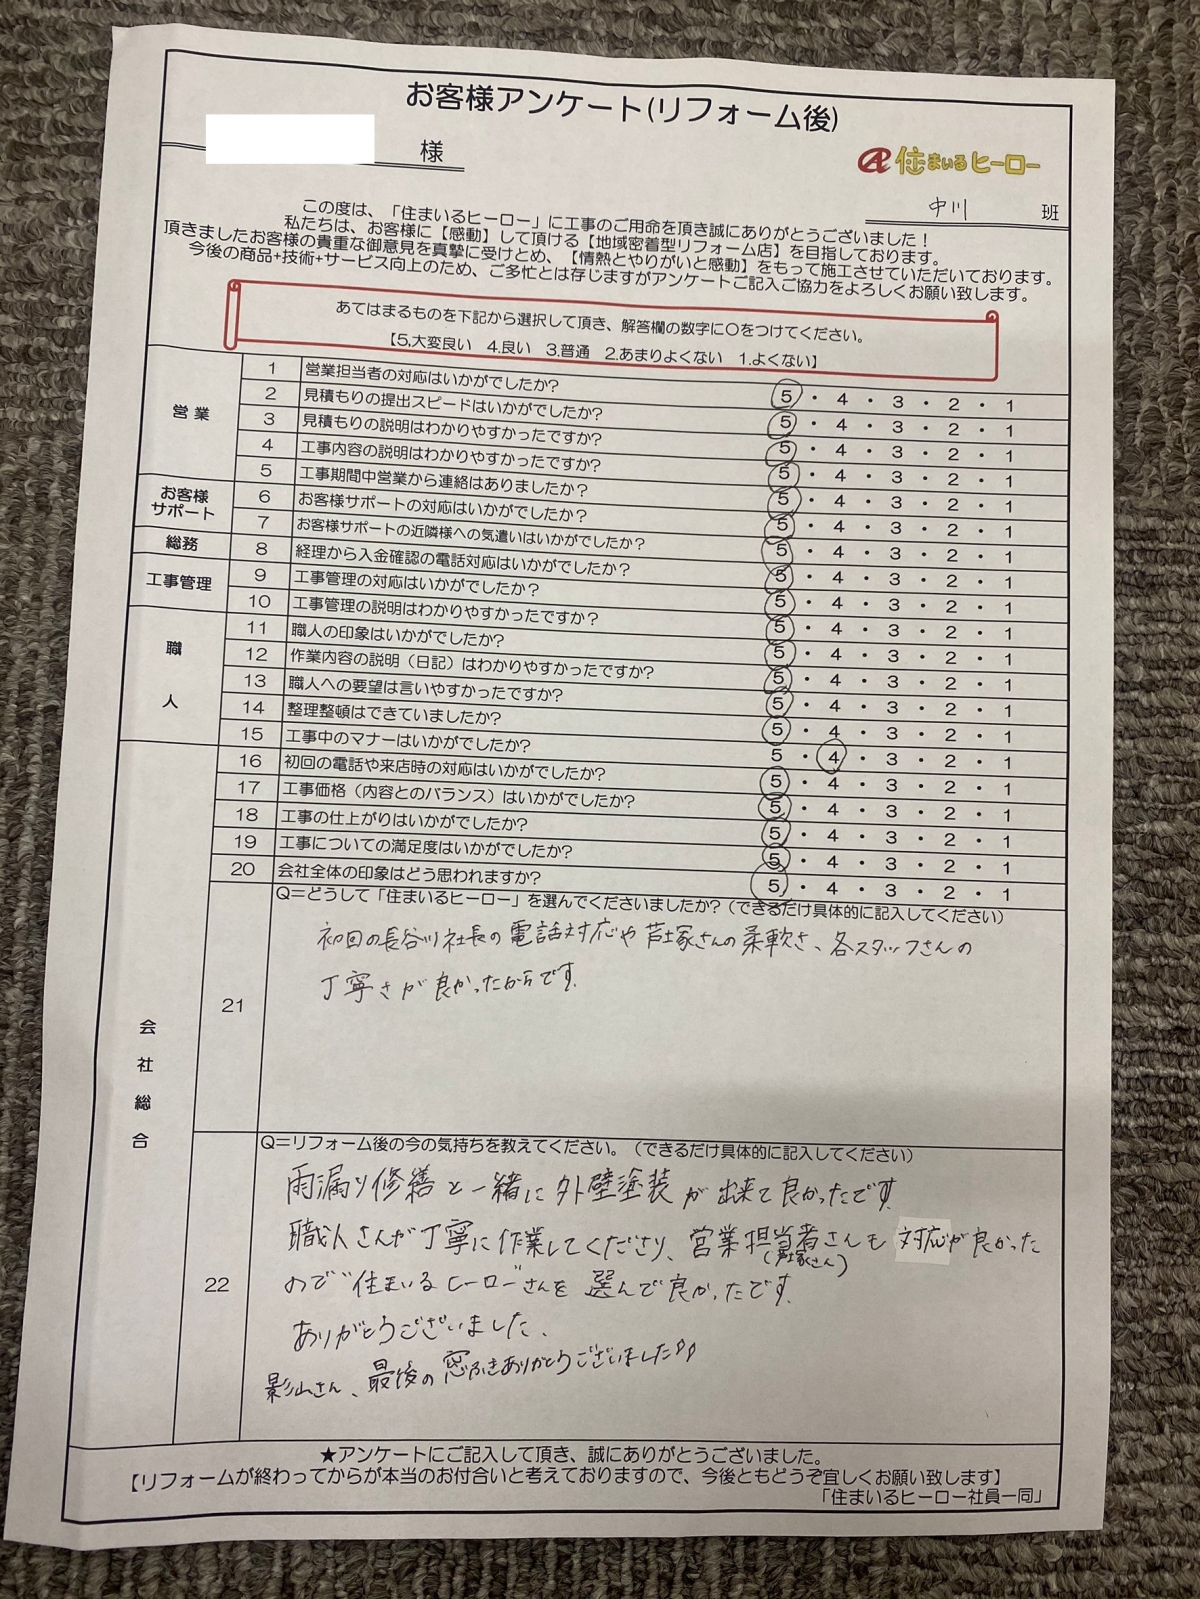 お客様アンケート(リフォーム後)
様
住まいるヒーロー
中川 班
この度は、「住まいるヒーロー」に工事のご用命を頂き誠にありがとうございました！
私たちは、お客様に【感動】して頂ける【地域密着型リフォーム店】を目指しております。
頂きましたお客様の貴重な御意見を真摯に受けとめ、【情熱とやりがいと感動】をもって施工させていただいております。
今後の商品+技術+サービス向上のため、ご多忙とは存じますがアンケートご記入ご協力をよろしくお願い致します。
あてはまるものを下記から選択して頂き、解答欄の数字に〇をつけてください。
【5,大変良い 4.良い 3.普通 2.あまりよくない 1.よくない】
営業
1 営業担当者の対応はいかがでしたか? 5・4・3・2・1
2 見積もりの提出スピードはいかがでしたか? 5・4・3・2・1
3 見積もりの説明はわかりやすかったですか? 5・4・3・2・1
4 工事内容の説明はわかりやすかったですか? 5・4・3・2・1
5 工事期間中営業から連絡はありましたか? 5・4・3・2・1
お客様
サポート
6 お客様サポートの対応はいかがでしたか? 5・4・3・2・1
7 お客様サポートの近隣様への気遣いはいかがでしたか? 5・4・3・2・1
総務
8 経理から入金確認の電話対応はいかがでしたか? 5・4・3・2・1
工事管理
9 工事管理の対応はいかがでしたか? 5・4・3・2・1
10 工事管理の説明はわかりやすかったですか? 5・4・3・2・1
職人
11 職人の印象はいかがでしたか? 5・4・3・2・1
12 作業内容の説明（日記）はわかりやすかったですか? 5・4・3・2・1
13 職人への要望は言いやすかったですか? 5・4・3・2・1
14 整理整頓はできていましたか? 5・4・3・2・1
15 工事中のマナーはいかがでしたか? 5・4・3・2・1
会社総合
16 初回の電話や来店時の対応はいかがでしたか? 5・4・3・2・1
17 工事価格（内容とのバランス）はいかがでしたか? 5・4・3・2・1
18 工事の仕上がりはいかがでしたか? 5・4・3・2・1
19 工事についての満足度はいかがでしたか? 5・4・3・2・1
20 会社全体の印象はどう思われますか? 5・4・3・2・1
21
Q=どうして「住まいるヒーロー」を選んでくださいましたか?（できるだけ具体的に記入してください）
初回の長谷川社長の電話対応や芦塚さんの柔軟さ、各スタッフさんの
丁寧さが良かったからです。
22
Q=リフォーム後の今の気持ちを教えてください。（できるだけ具体的に記入してください）
雨漏り修繕と一緒に外壁塗装が出来て良かったです。
職人さんが丁寧に作業してくださり、営業担当者さんも対応が良かった
(芦塚さん)
ので"住まいるヒーロー"さんを選んで良かったです。
ありがとうございました。
影山さん、最後の窓ふきありがとうございました!!
★アンケートにご記入して頂き、誠にありがとうございました。
【リフォームが終わってからが本当のお付合いと考えておりますので、今後ともどうぞ宜しくお願い致します】
「住まいるヒーロー社員一同」